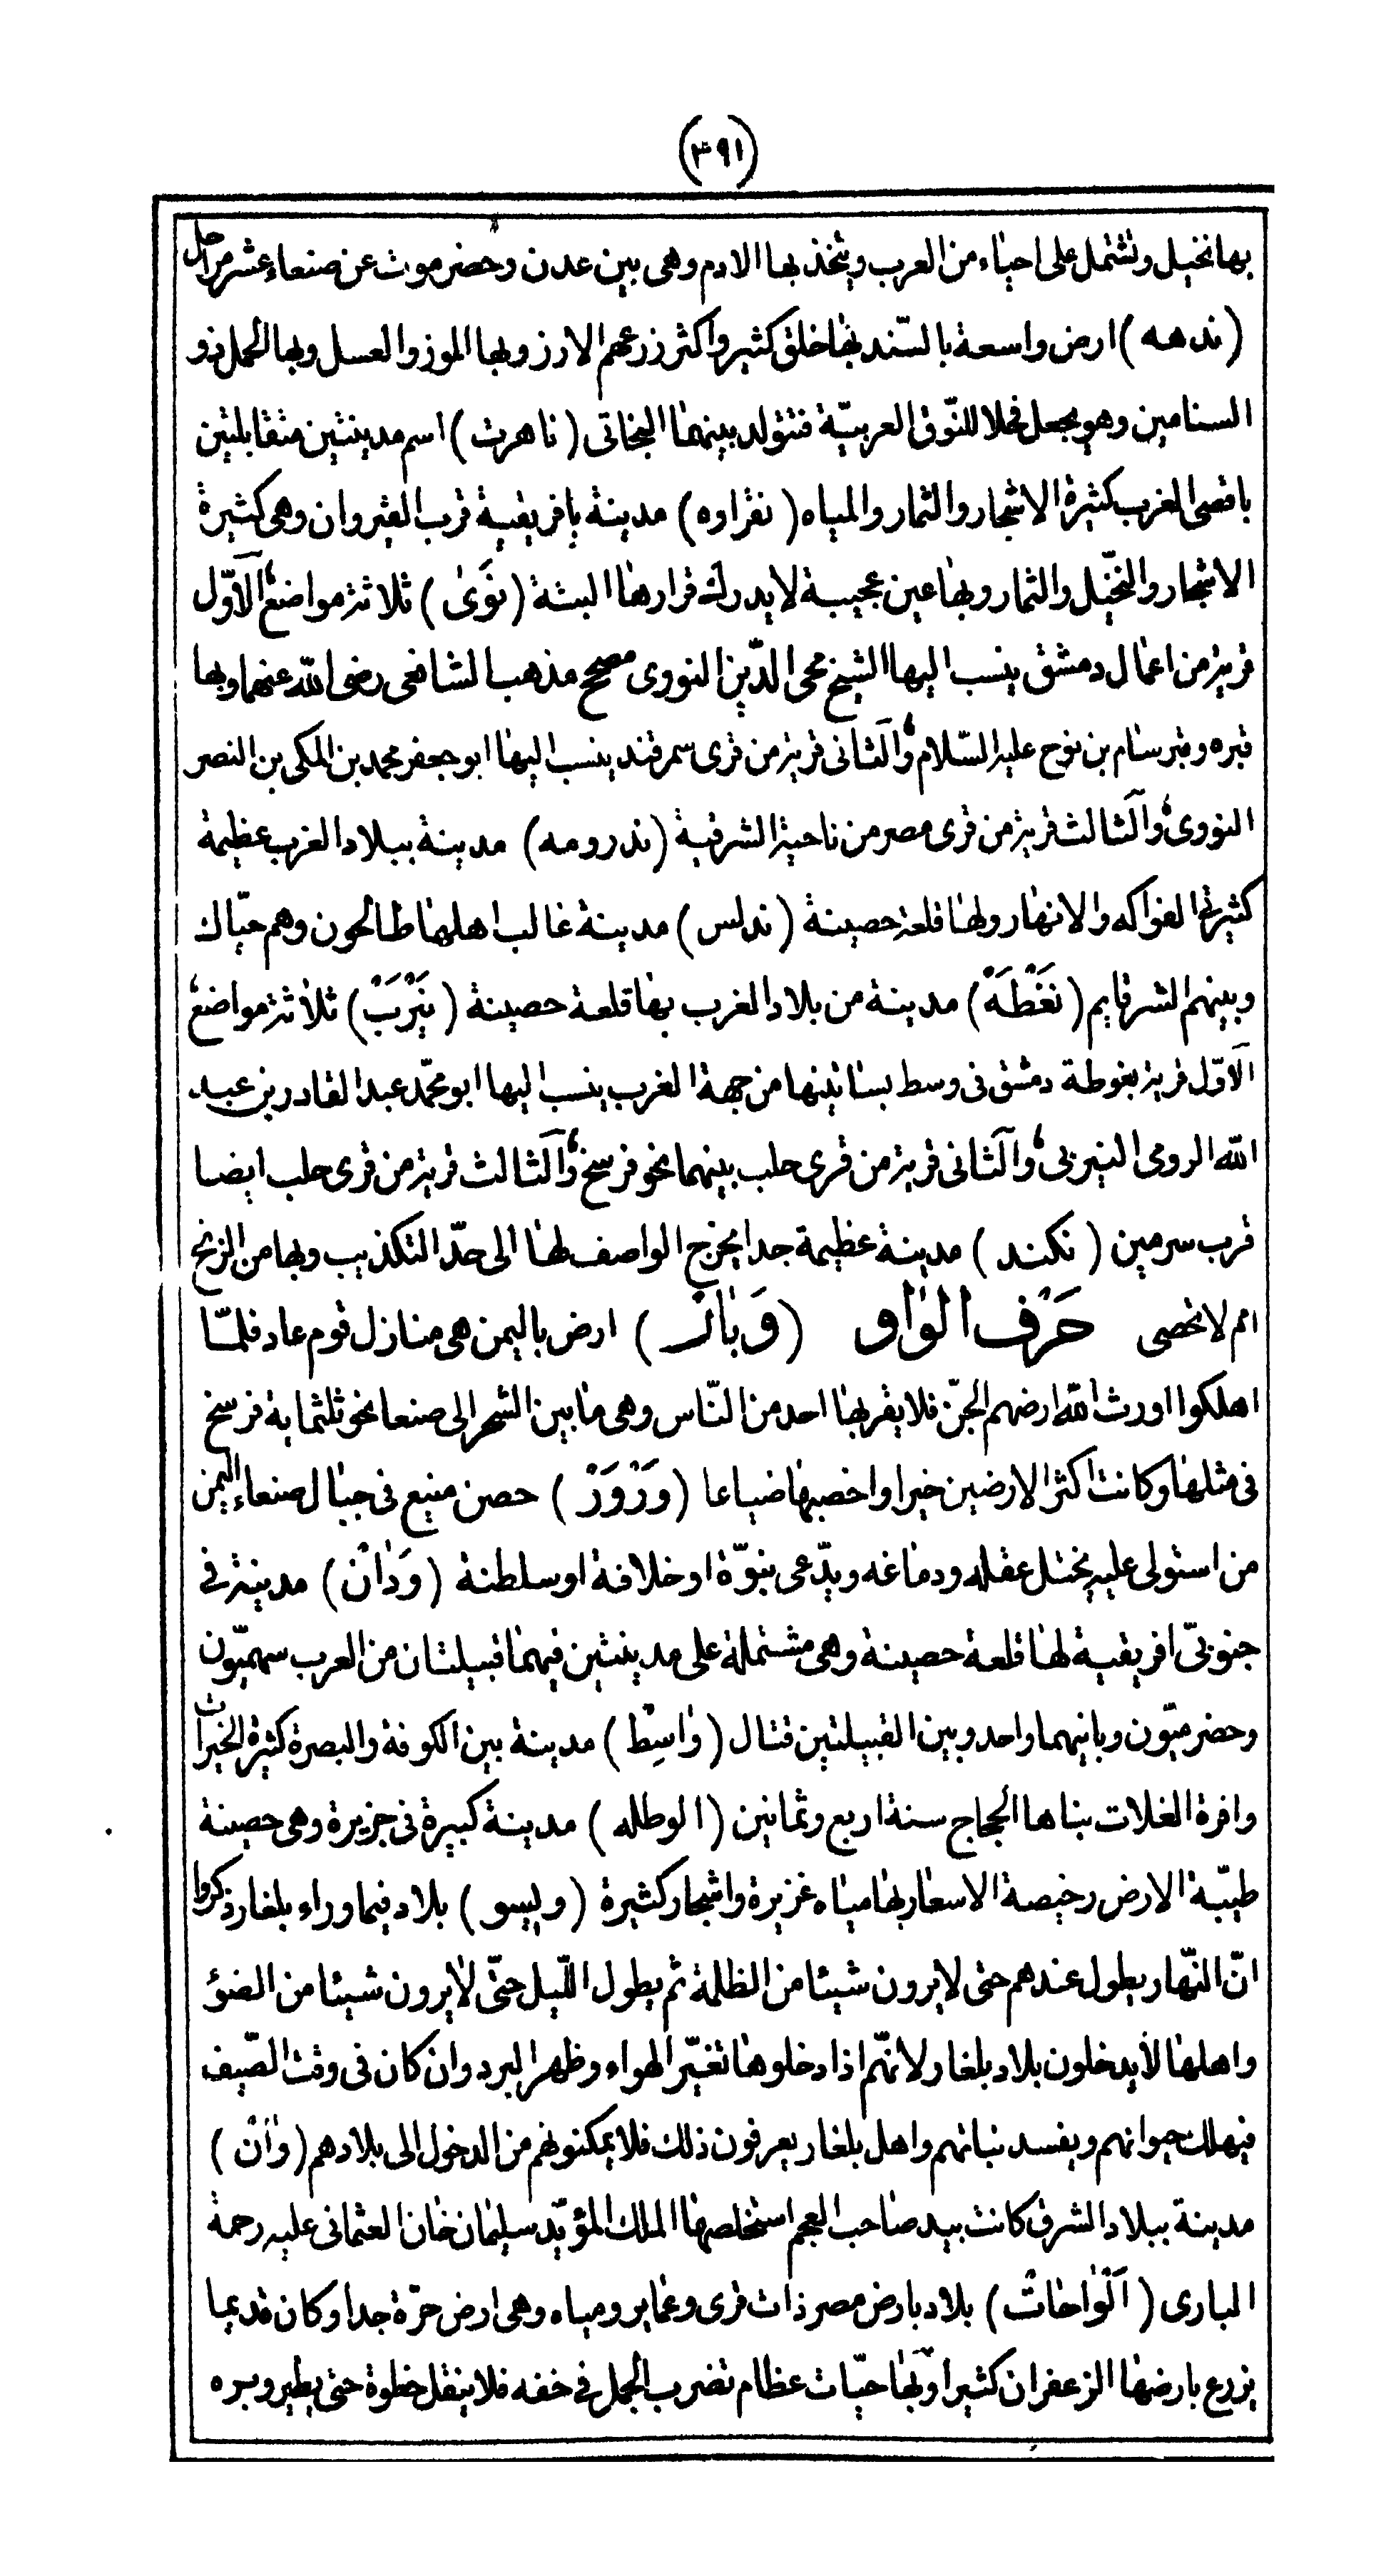 (٣٩١)
بها نخيل وتشتمل على احياء من العرب ويتخذ بها الادم وهى بين عدن وحضرموت عن صنعاء عشر مراحل
(ندهه) ارض واسعة بالسّند بها خلق كثير واكثر زرعهم الارز وبها الموز والعسل وبها الجمل ذو
السنامين وهو يجعل فحلا للنّوق العربيّة فتتولد بينهما البخاتى (ناهرت) اسم مدينتين متقابلتين
باقصى الغرب كثيرة الاشجار والثمار والمياه (نفراوه) مدينة بافريقية قرب القيروان وهى كثيرة
الاشجار والنخّيل والثمار وبها عين عجيبة لا يدرك قرارها البتة (نَوَىٰ) ثلاثة مواضع الاَوّل
قرية من اعمال دمشق ينسب اليها الشيخ محى الدّين النووى مصحح مذهب الشافعى رضى اللّه عنهما وبها
قبره وقبر سام بن نوح عليه السّلام والَثانى قرية من قرى سمرقند ينسب اليها ابو جعفر محمد بن المكى بن النصر
النووى والَثالث قرية من قرى مصر من ناحية الشرقية (ندرومه) مدينة ببلاد الغرب عظيمة
كثيرة الفواكه والانهار ولها قلعة حصينة (ندلس) مدينة غالب اهلها طالحون وهم حيّاك
وبينهم الشر قايم (نَفْطَهْ) مدينة من بلاد الغرب بها قلعة حصينة (نَيْرَبْ) ثلاثة مواضع
الاَوّل قرية بغوطة دمشق فى وسط بساتينها من جهة الغرب ينسب اليها ابو محمّد عبد القادر بن عبد
اللّه الرومى النيربى والَثانى قرية من قرى حلب بينهما نحو فرسخ والَثالث قرية من قرى حلب ايضا
قرب سرمين (نكند) مدينة عظيمة جدا يخرج الواصف لها الى حدّ التكذيب وبها من الزنج
امم لا تحصى حَرْف الوٰاو (وَبٰارْ) ارض باليمن هى منازل قوم عاد فلمّا
اهلكوا اورث اللّه ارضهم الجنّ فلا يقربها احد من النّاس وهى ما بين الشحر الى صنعا نحو ثلثماية فرسخ
فى مثلها وكانت اكثر الارضين خيرا واخصبها ضياعا (وَرْوَرْ) حصن منيع فى جبال صنعاء اليمن
من استولى عليه يختل عقله ودماغه ويدّعى نبوّة او خلافة او سلطنة (وَدٰانْ) مدينة فى
جنوبىّ افريقية لها قلعة حصينة وهى مشتملة على مدينتين فيهما قبيلتان من العرب سهميّون
وحضرميّون وبابهما واحد وبين القبيلتين قتال (وٰاسِطْ) مدينة بين الكوفة والبصرة كثيرة الخيرات
وافرة الغلات بناها الحجاج سنة اربع وثمانين (الوطله) مدينة كبيرة فى جزيرة وهى حصينة
طيّبة الارض رخيصة الاسعار بها مياه غزيرة واشجار كثيرة (ويسو) بلاد فيما وراء بلغار ذكروا
انّ النّهار يطول عندهم حتى لا يرون شيئا من الظلمة ثم يطول اللّيل حتّى لا يرون شيئا من الضؤ
واهلها لا يدخلون بلاد بلغار ولانّهم اذا دخلوها تغيّر الهواء وظهر البرد وان كان فى وقت الصّيف
فيهلك حيوانهم ويفسد نباتهم واهل بلغار يعرفون ذلك فلا يمكنونهم من الدخول الى بلادهم (وٰانْ)
مدينة ببلاد الشرق كانت بيد صاحب العجم استخلصها الملك المؤيّد سليمان خان العثمانى عليه رحمة
البارى (اَلْوٰاحٰاتْ) بلاد بارض مصر ذات قرى وعماير ومياه وهى ارض حرّة جدا وكان قديما
يزرع بارضها الزعفران كثيرا وبها حيّات عظام تضرب الجمل فى خفه فلا ينقل خطوة حتى يطير وبره